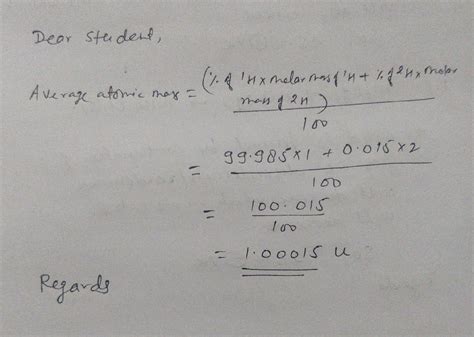 Dear student,
Average atomic mass = (% of ¹H x molar mass of ¹H + % of ²H x molar
mass of 2H)
100
= 99.985×1 + 0.015×2
100
= 100.015
100
= 1.00015 u
Regards